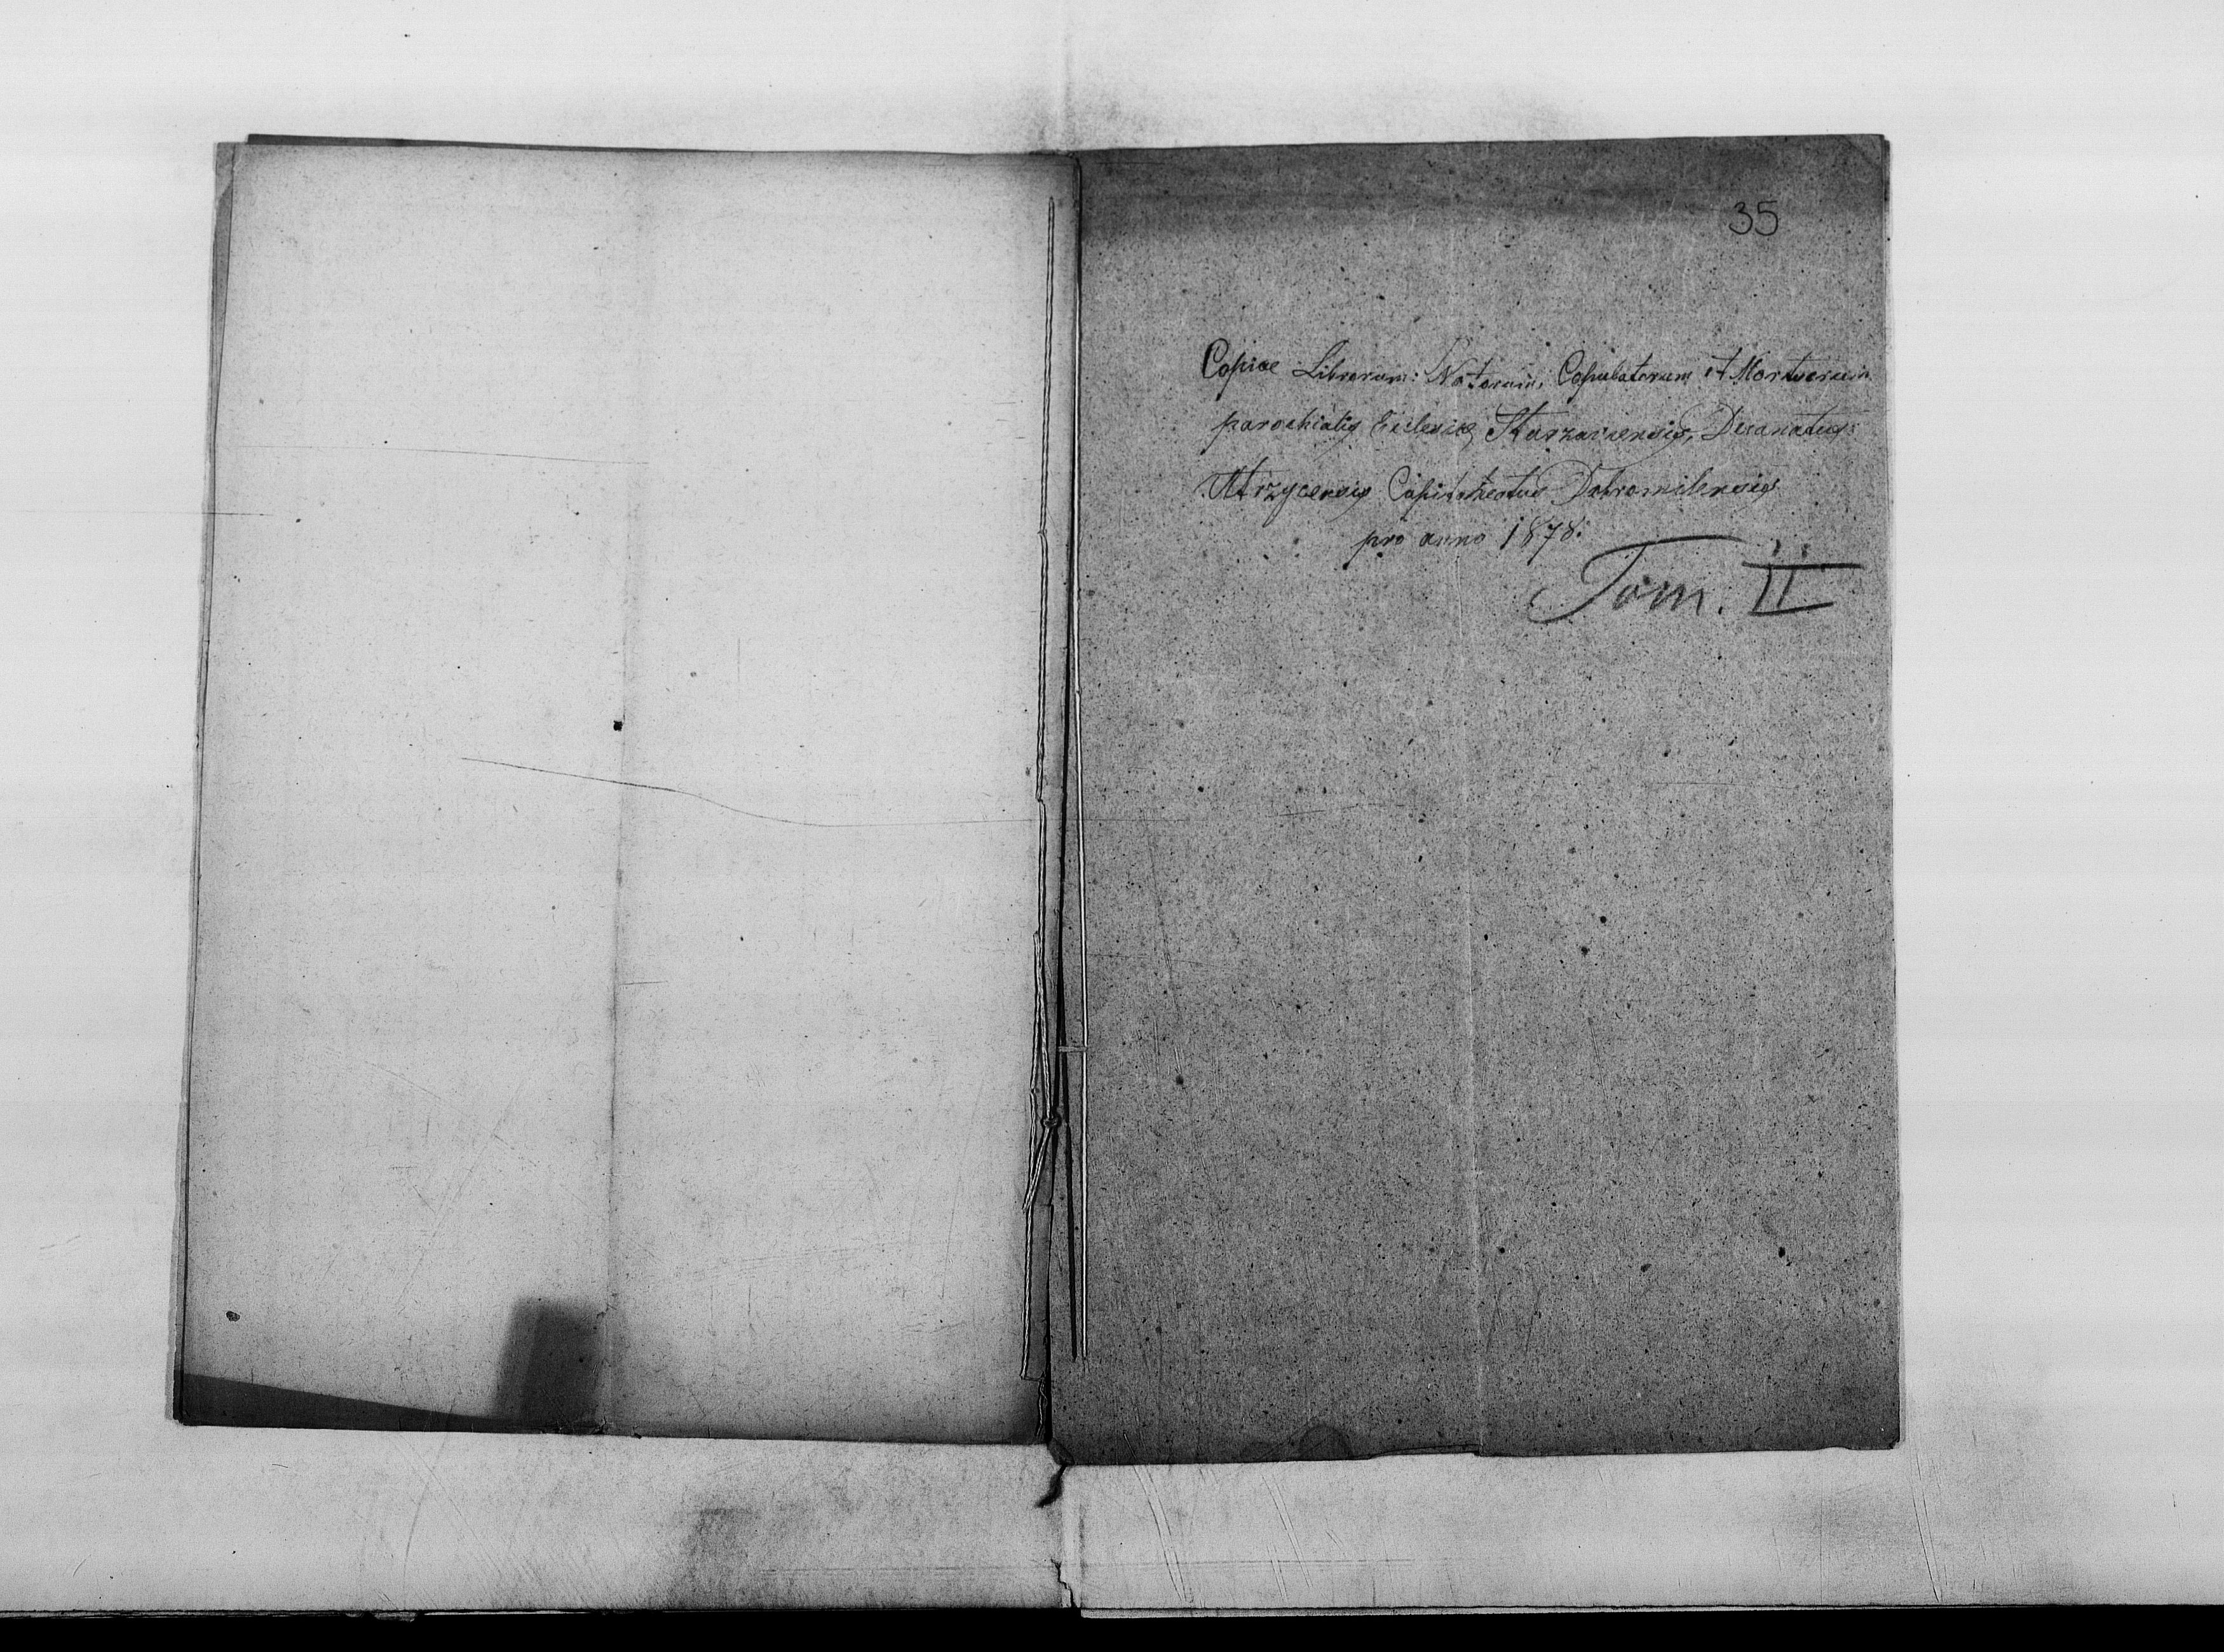 35
Copiae Librorum: Natorum, Copulatorum et Mortuorum
parochialis Eclesiae, Decanatus
Ustrzycensis Capitaneatus Dobromilensis
pro anno 1878.
Tom. II